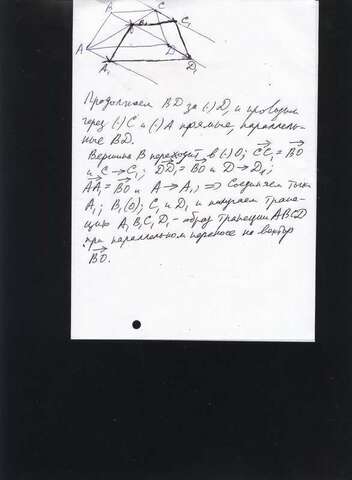 B C
B₁ C₁
A D
A₁ D₁
Продолжаем BD за (·) D, и проводим
через (·) C и (·) A прямые, параллель-
ные BD.
Вершина B переходит в (·) O; CC₁ = BO
и C → C₁; DD₁ = BO и D → D₁;
AA₁ = BO и A → A₁ ⇒ Соединяем точки
A₁; B₁(O); C₁ и D₁ и получаем трапе-
цию A₁B₁C₁D₁ - образ трапеции ABCD
при параллельном переносе на вектор
BO.